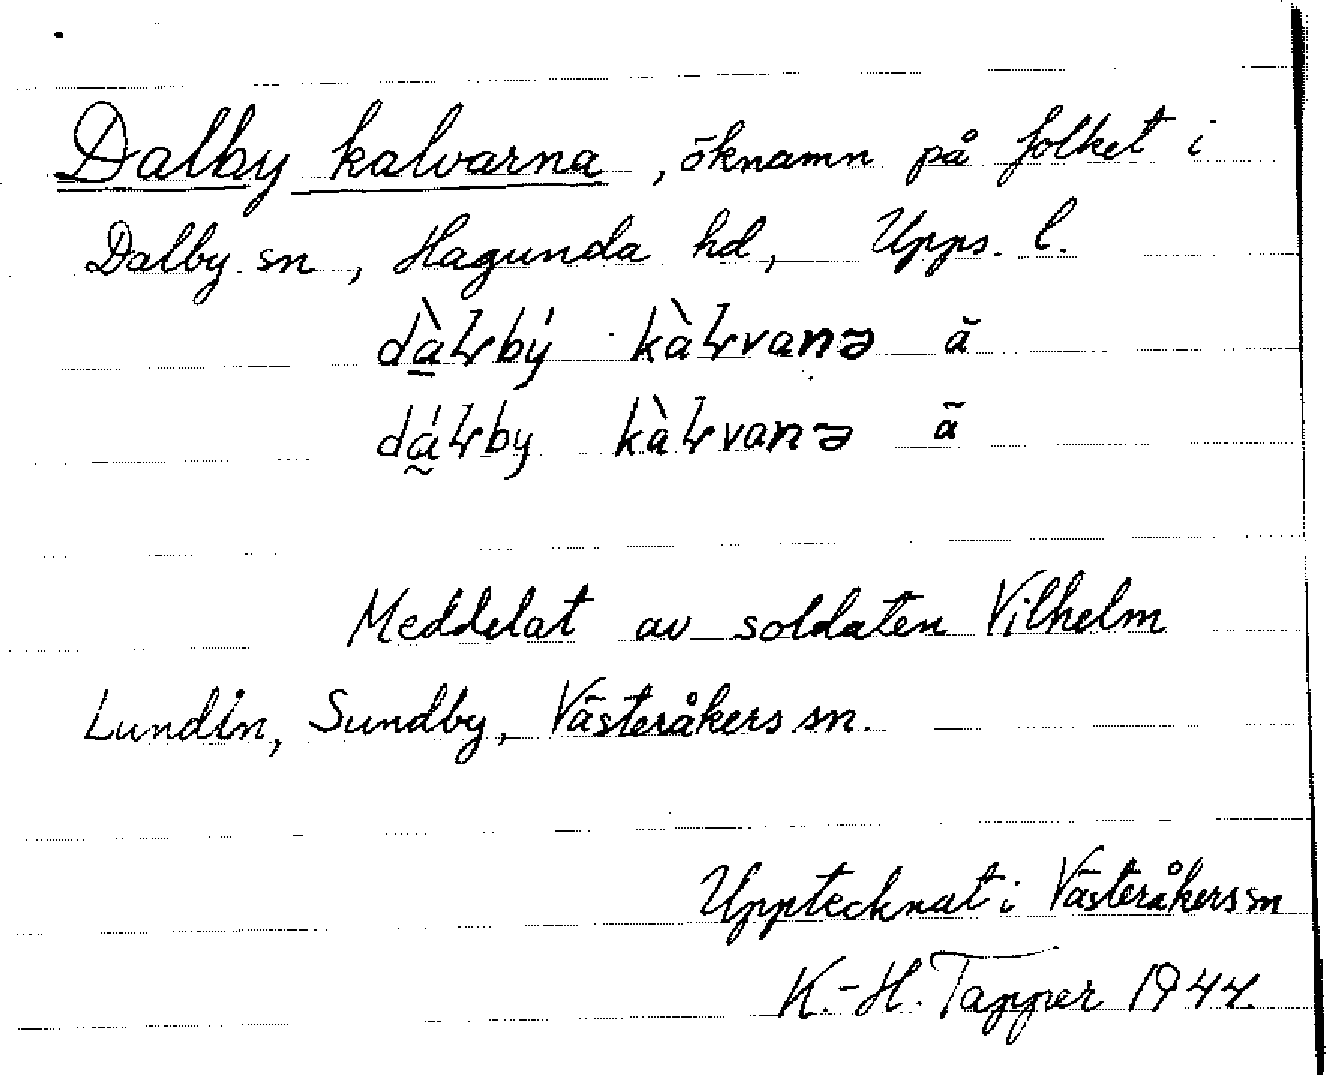 Dalby kalvarna, öknamn på folket i
Dalby sn, Hagunda hd, Upps. l.
dàłbý kàłvanə ă
dáłby kàłvanə ã
Meddelat av soldaten Vilhelm
Lundin, Sundby, Västeråkers sn.
Upptecknat i Västeråkers sn
K.-H. Tapper 1944.